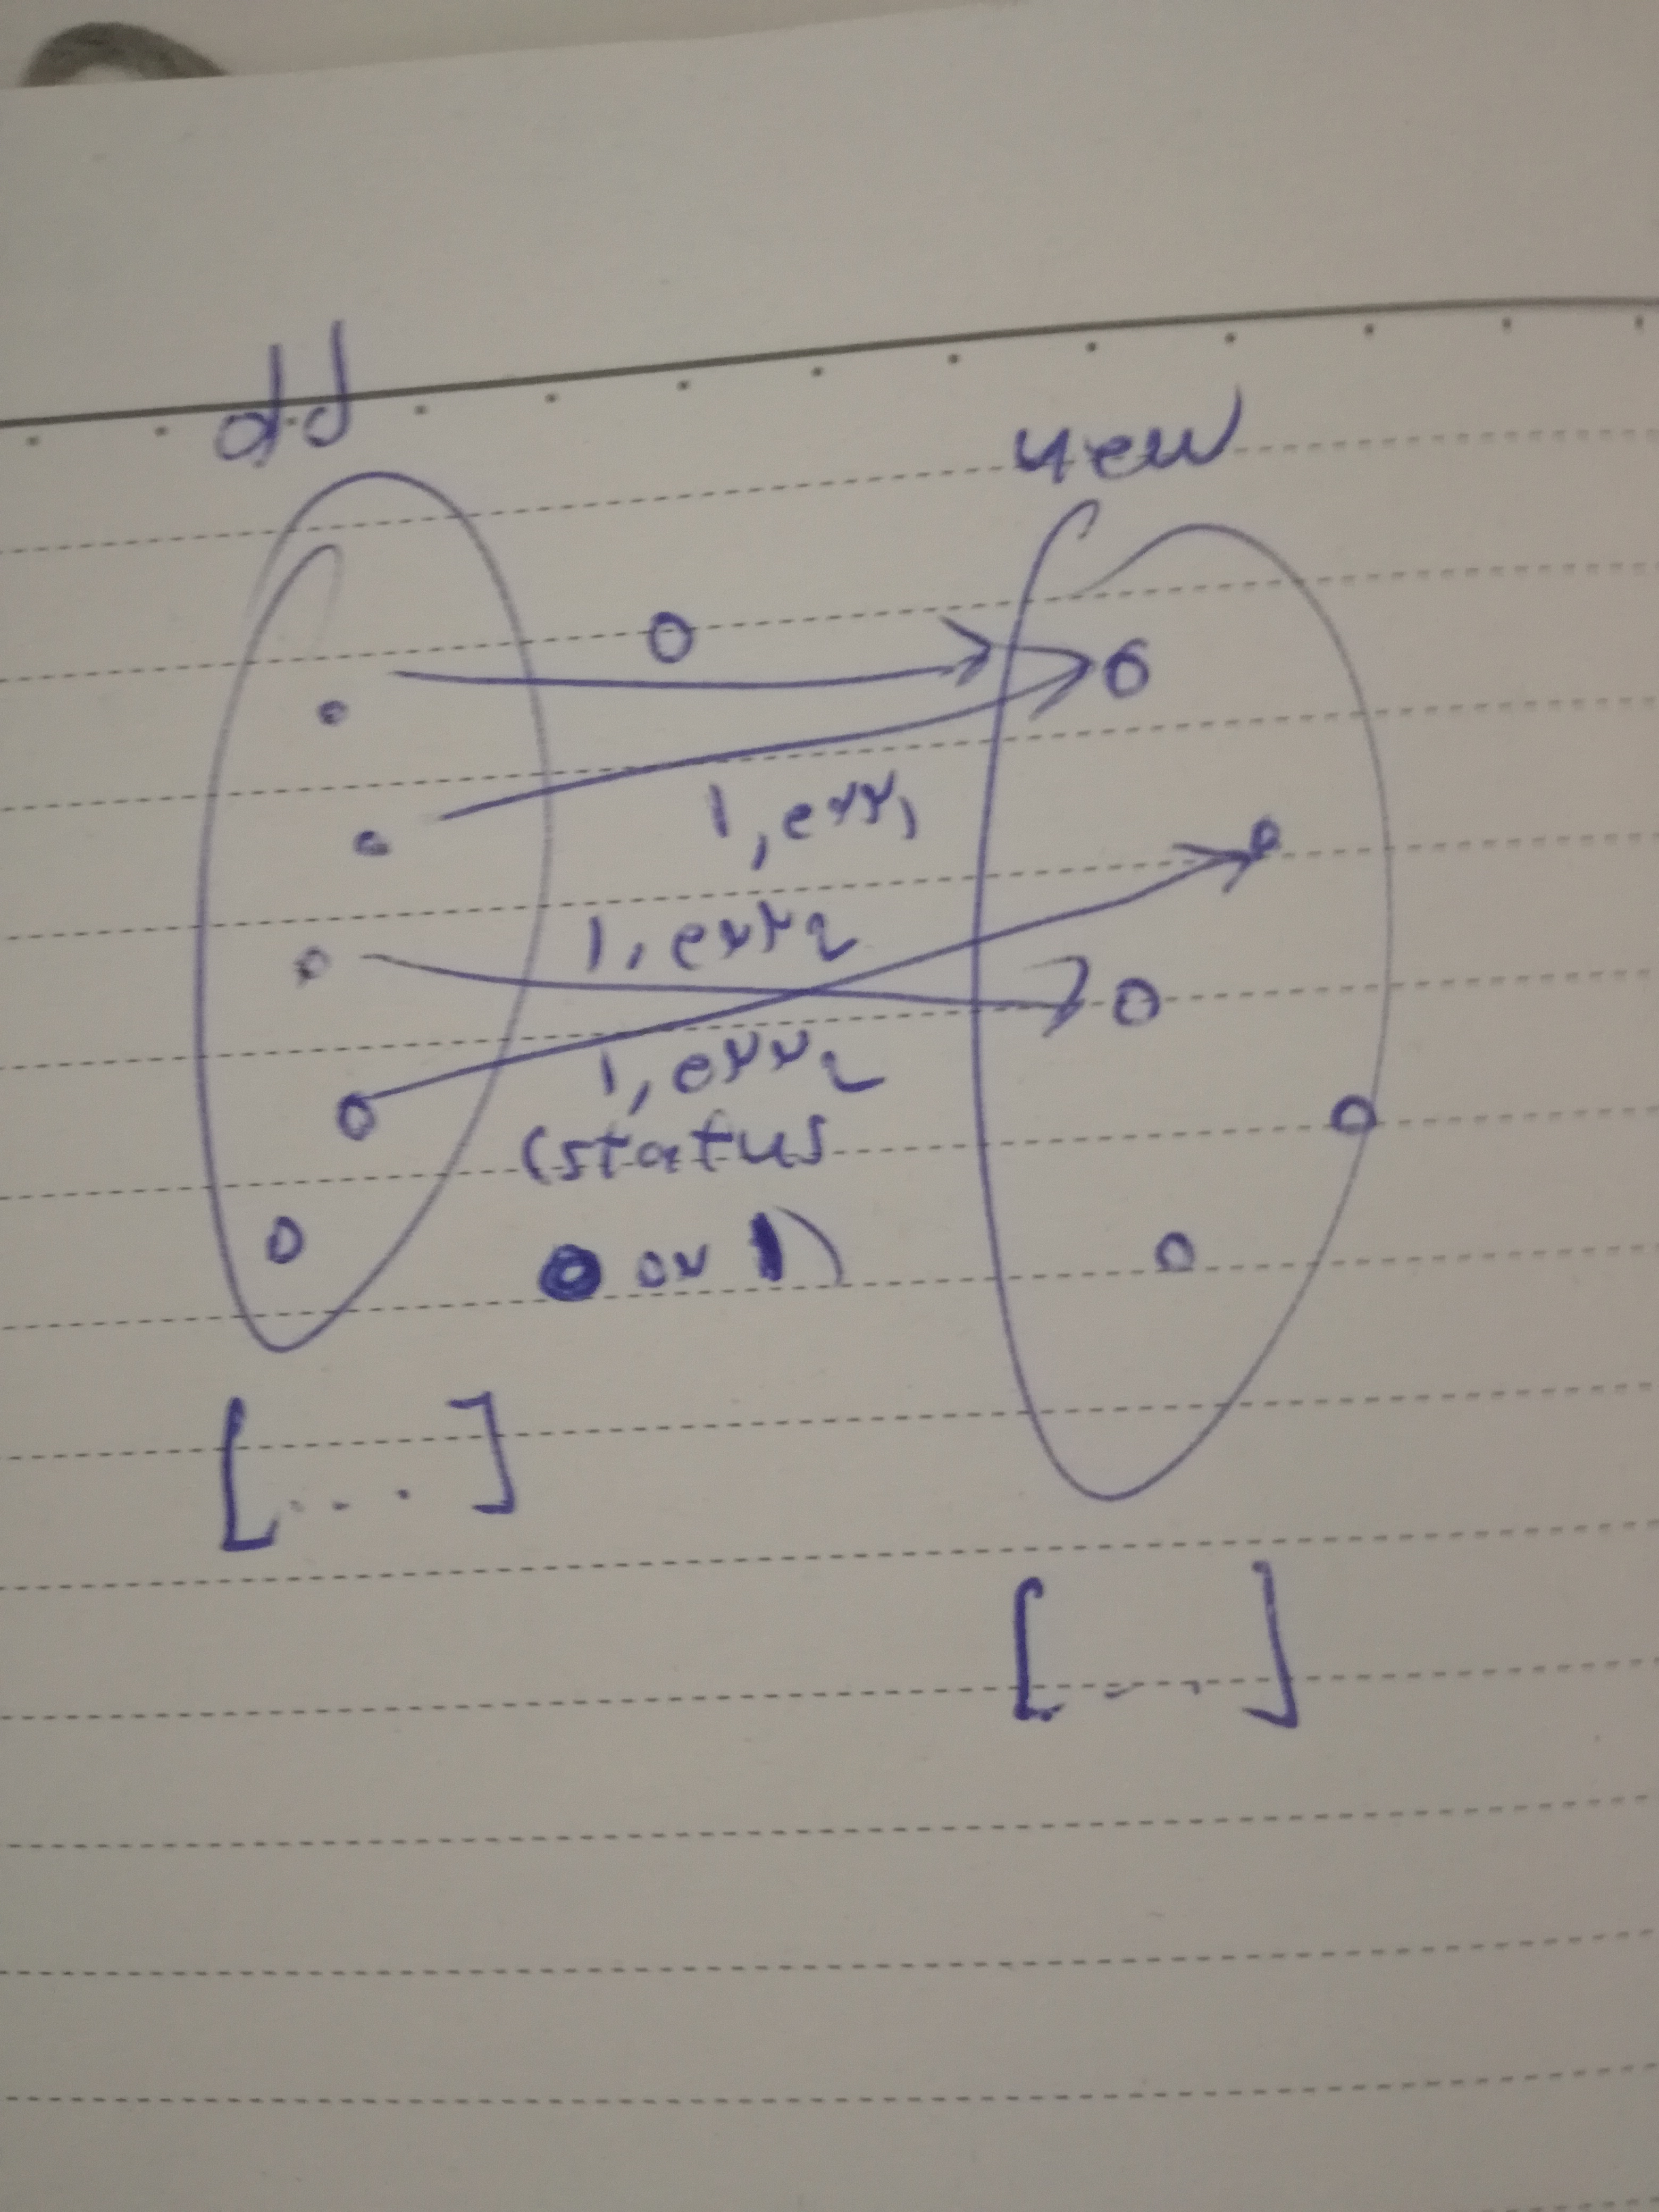 old
new
0
1, err1
1, err2
1, err2
(status
0 or 1)
[...]
[...]